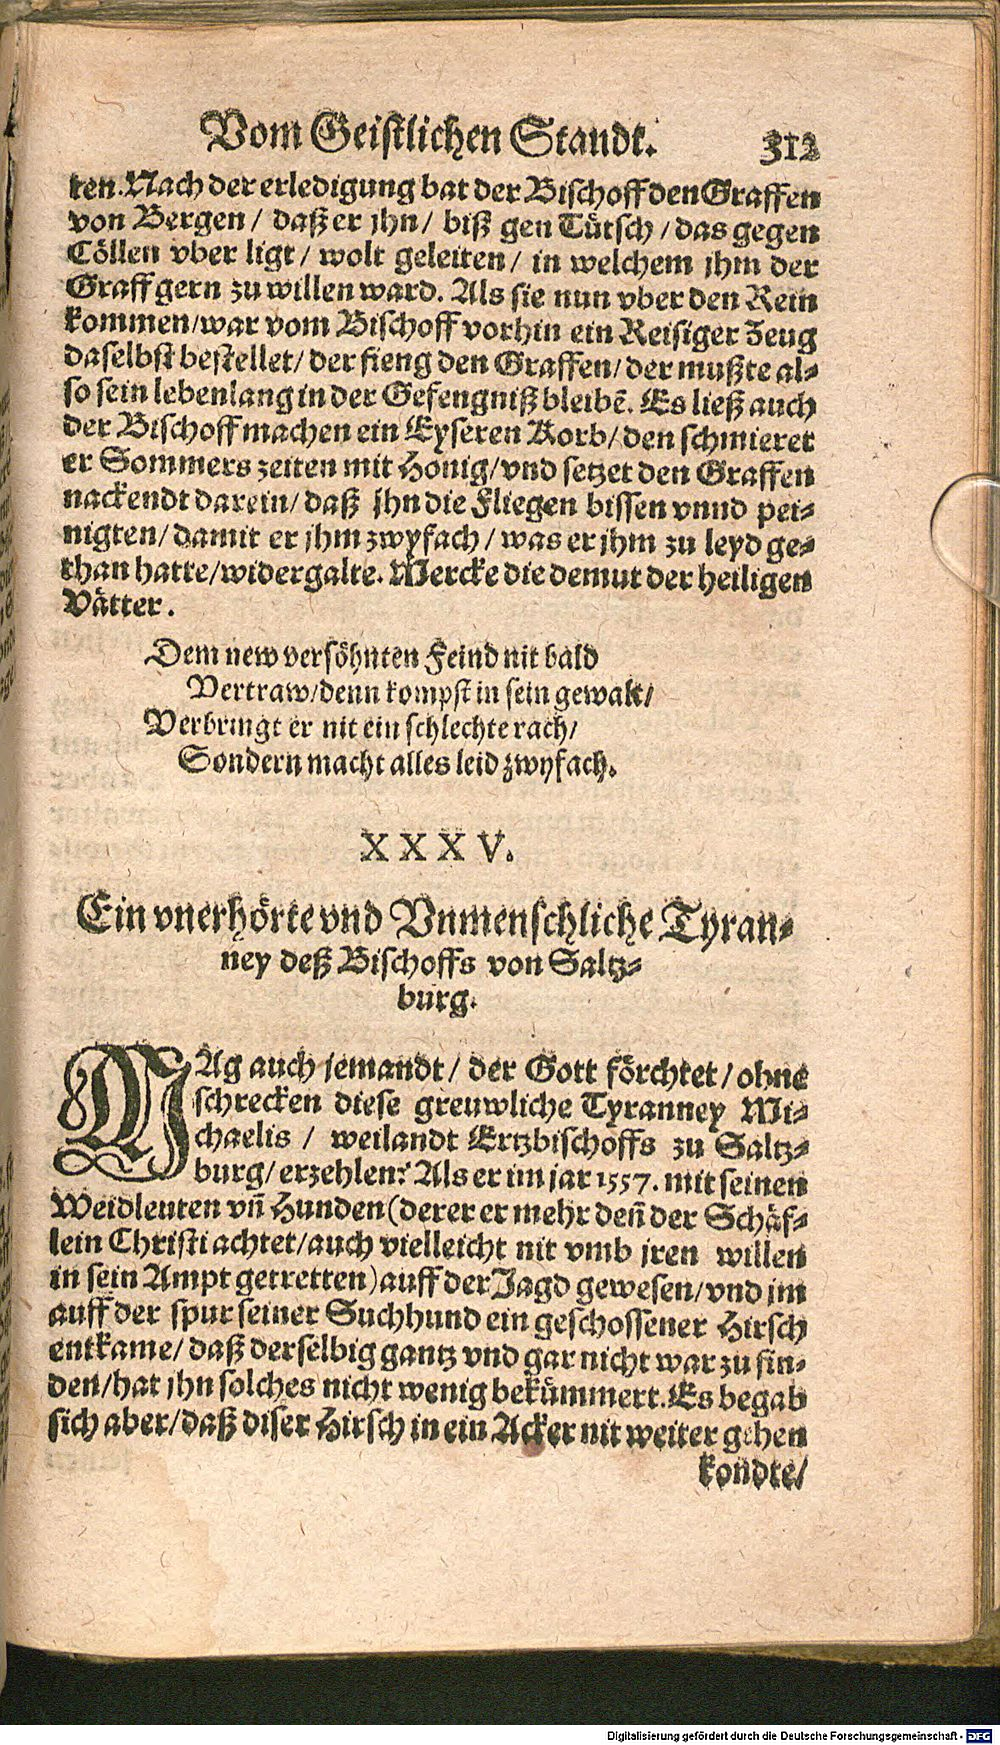 Vom Geistlichen Standt. 312
ten. Nach der erledigung bat der Bischoff den Graffen
von Bergen / daß er jhn / biß gen Tütsch / das gegen
Cöllen vber ligt / wolt geleiten / in welchem jhm der
Graff gern zu willen ward. Als sie nun vber den Rein
kommen / war vom Bischoff vorhin ein Reisiger Zeug
daselbst bestellet / der fieng den Graffen / der mußte al⸗
so sein lebenlang in der Gefengniß bleibẽ. Es ließ auch
der Bischoff machen ein Eyseren Korb / den schmieret
er Sommers zeiten mit Honig / vnd setzet den Graffen
nackendt darein / daß jhn die Fliegen bissen vnnd pei⸗
nigten / damit er jhm zwyfach / was er jhm zu leyd ge⸗
than hatte / widergalte. Mercke die demut der heiligen
Vätter.
Dem new versöhnten Feind nit bald
Vertraw / denn kompst in sein gewalt /
Verbringt er nit ein schlechte rach /
Sondern macht alles leid zwyfach.
XXXV.
Ein vnerhörte vnd Vnmenschliche Tyran⸗
ney deß Bischoffs von Saltz⸗
burg.
MAg auch jemandt / der Gott förchtet / ohne
schrecken diese greuwliche Tyranney Mi⸗
chaelis / weilandt Ertzbischoffs zu Saltz⸗
burg / erzehlen? Als er im jar 1557. mit seinen
Weidleuten vñ Hunden (derer er mehr deñ der Schäf⸗
lein Christi achtet / auch vielleicht nit vmb jren willen
in sein Ampt getretten) auff der Jagd gewesen / vnd jm
auff der spur seiner Suchhund ein geschossener Hirsch
entkame / daß derselbig gantz vnd gar nicht war zu fin⸗
den / hat jhn solches nicht wenig bekümmert. Es begab
sich aber / daß diser Hirsch in ein Acker nit weiter gehen
kondte /
Digitalisierung gefördert durch die Deutsche Forschungsgemeinschaft - DFG